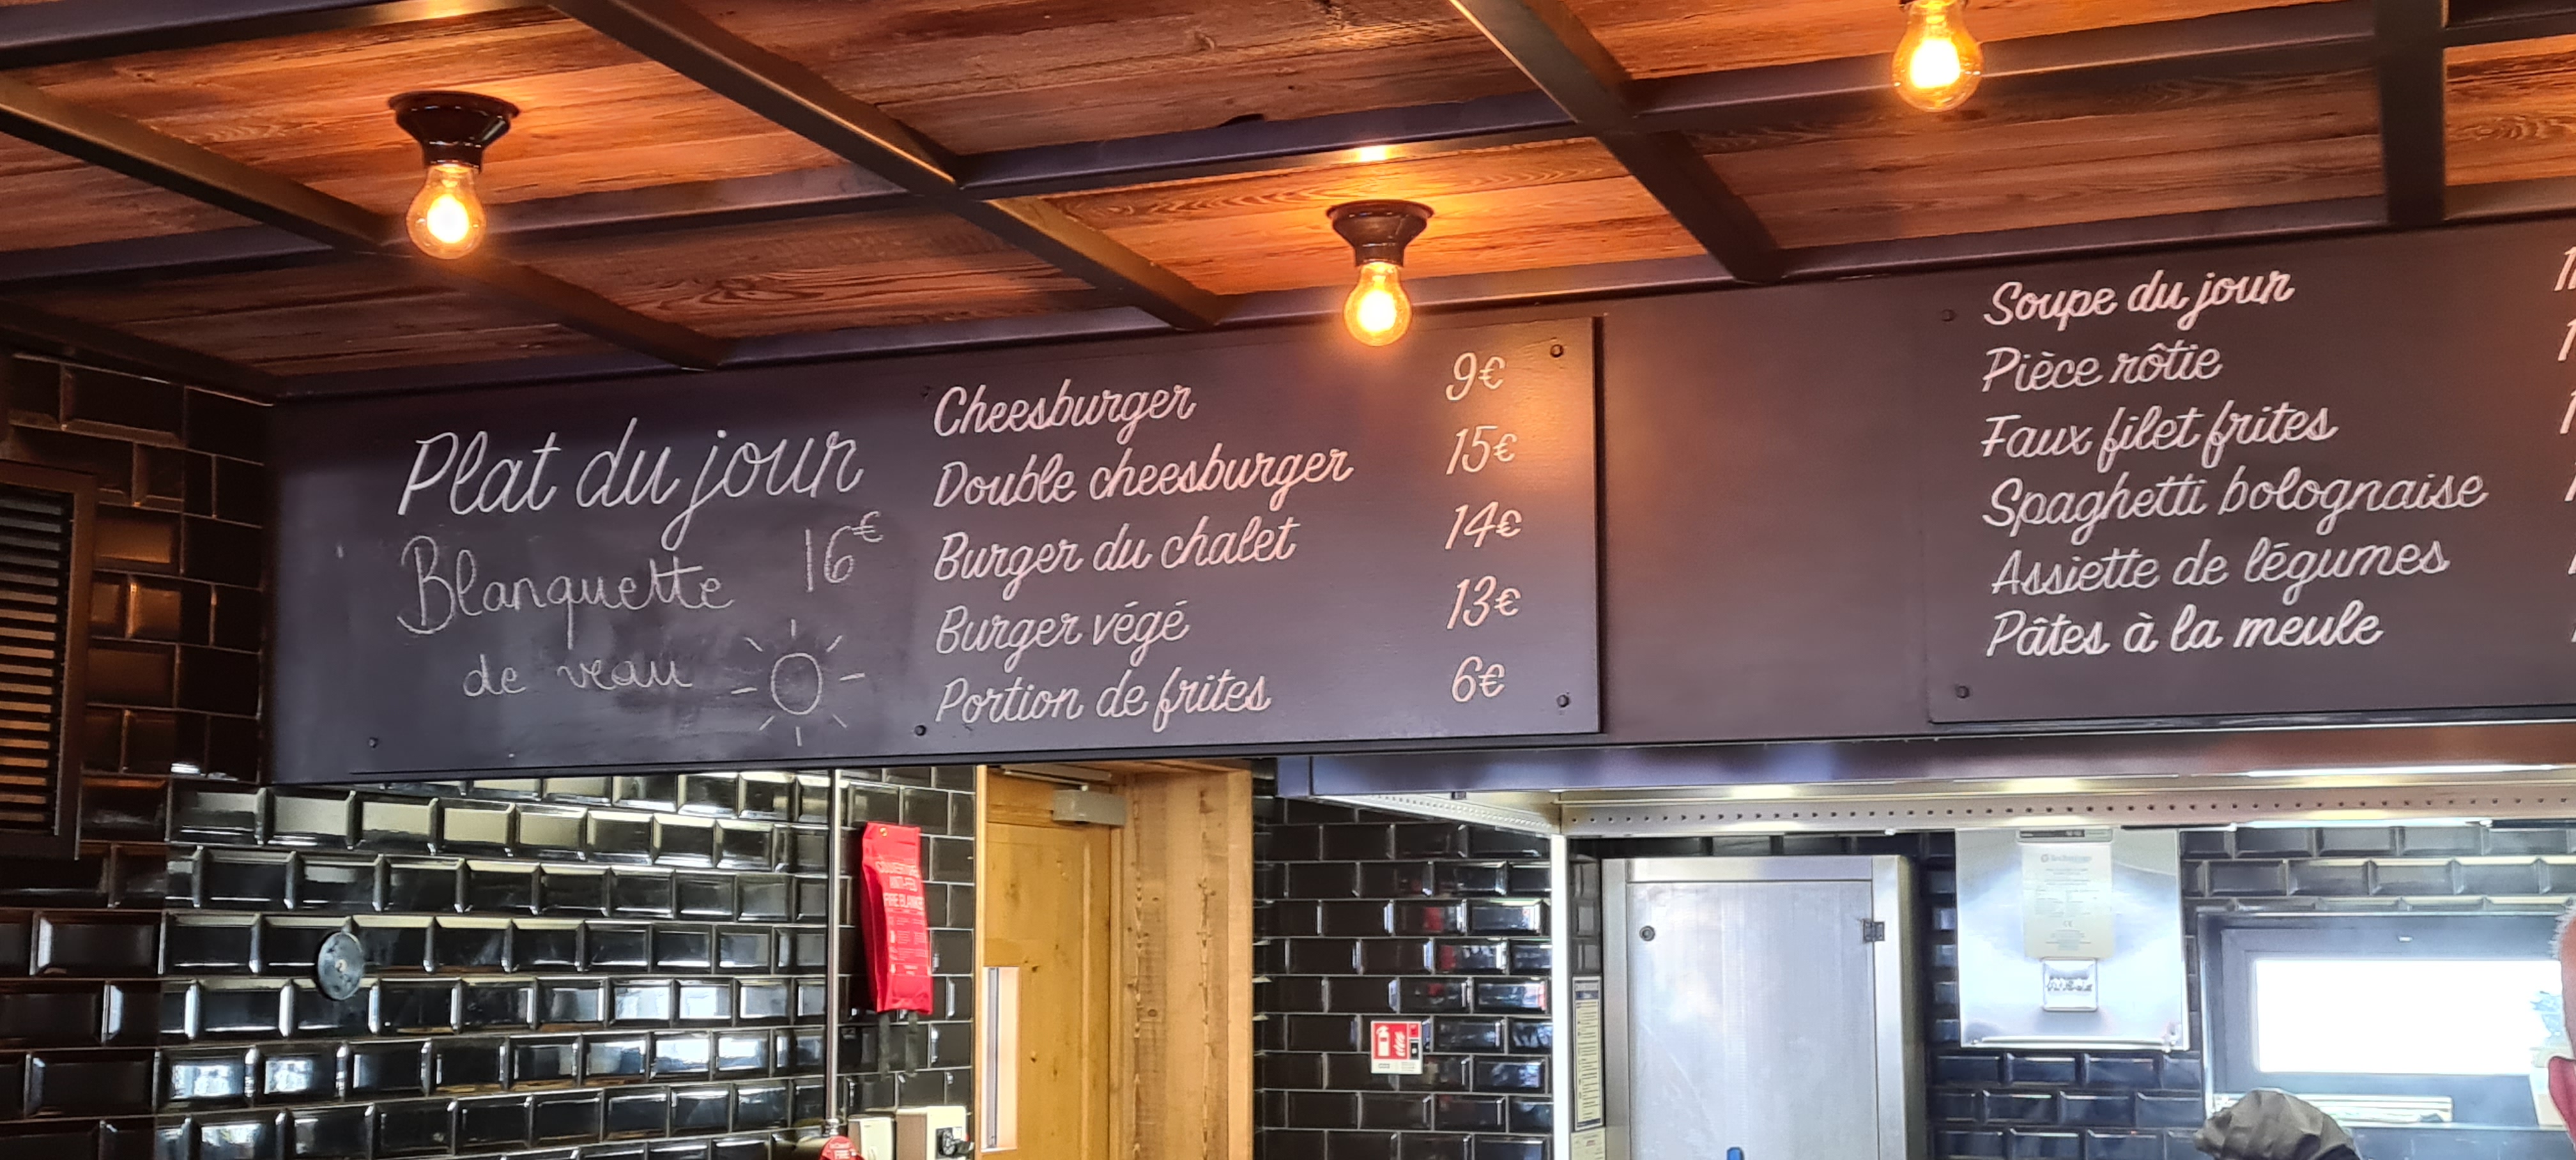 Plat du jour
Blanquette 16€
de veau
Cheesburger 9€
Double cheesburger 15€
Burger du chalet 14€
Burger végé 13€
Portion de frites 6€
Soupe du jour
Pièce rôtie
Faux filet frites
Spaghetti bolognaise
Assiette de légumes
Pâtes à la meule
COUVERTURE
ANTI-FEU
FIRE BLANKET